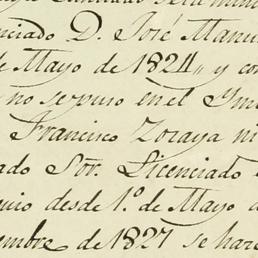 enciado D. José Manu
de Mayo de 1824,, y con
no se puso en el Ym
Francisco Zoraya ni
ado Sor. Licenciado
uio desde 1.º de Mayo d
iembre de 1827 se hara